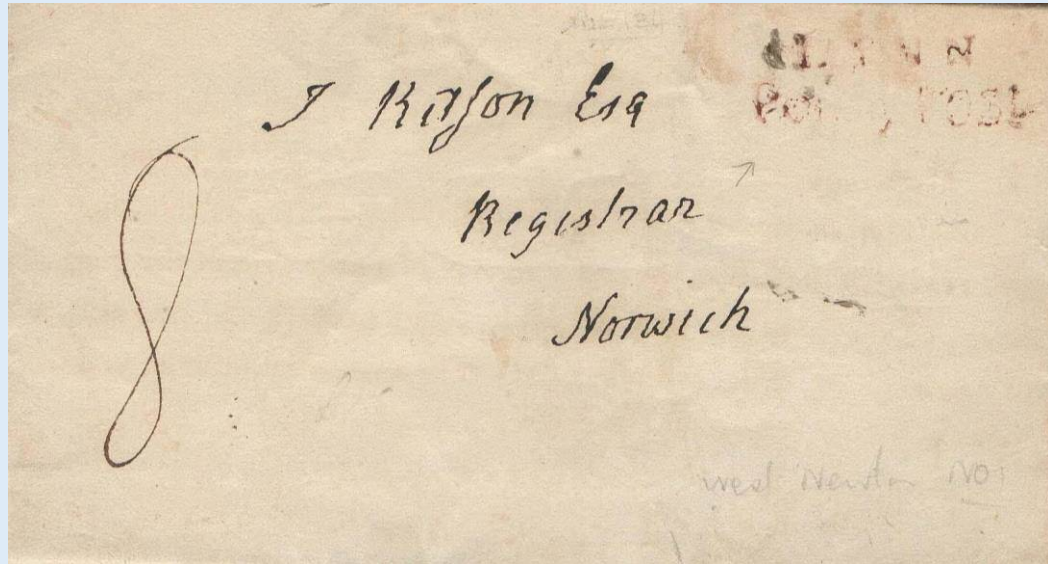 Penny Post
J Kitson Esq
Registrar
Norwich
8
West Newton No 1